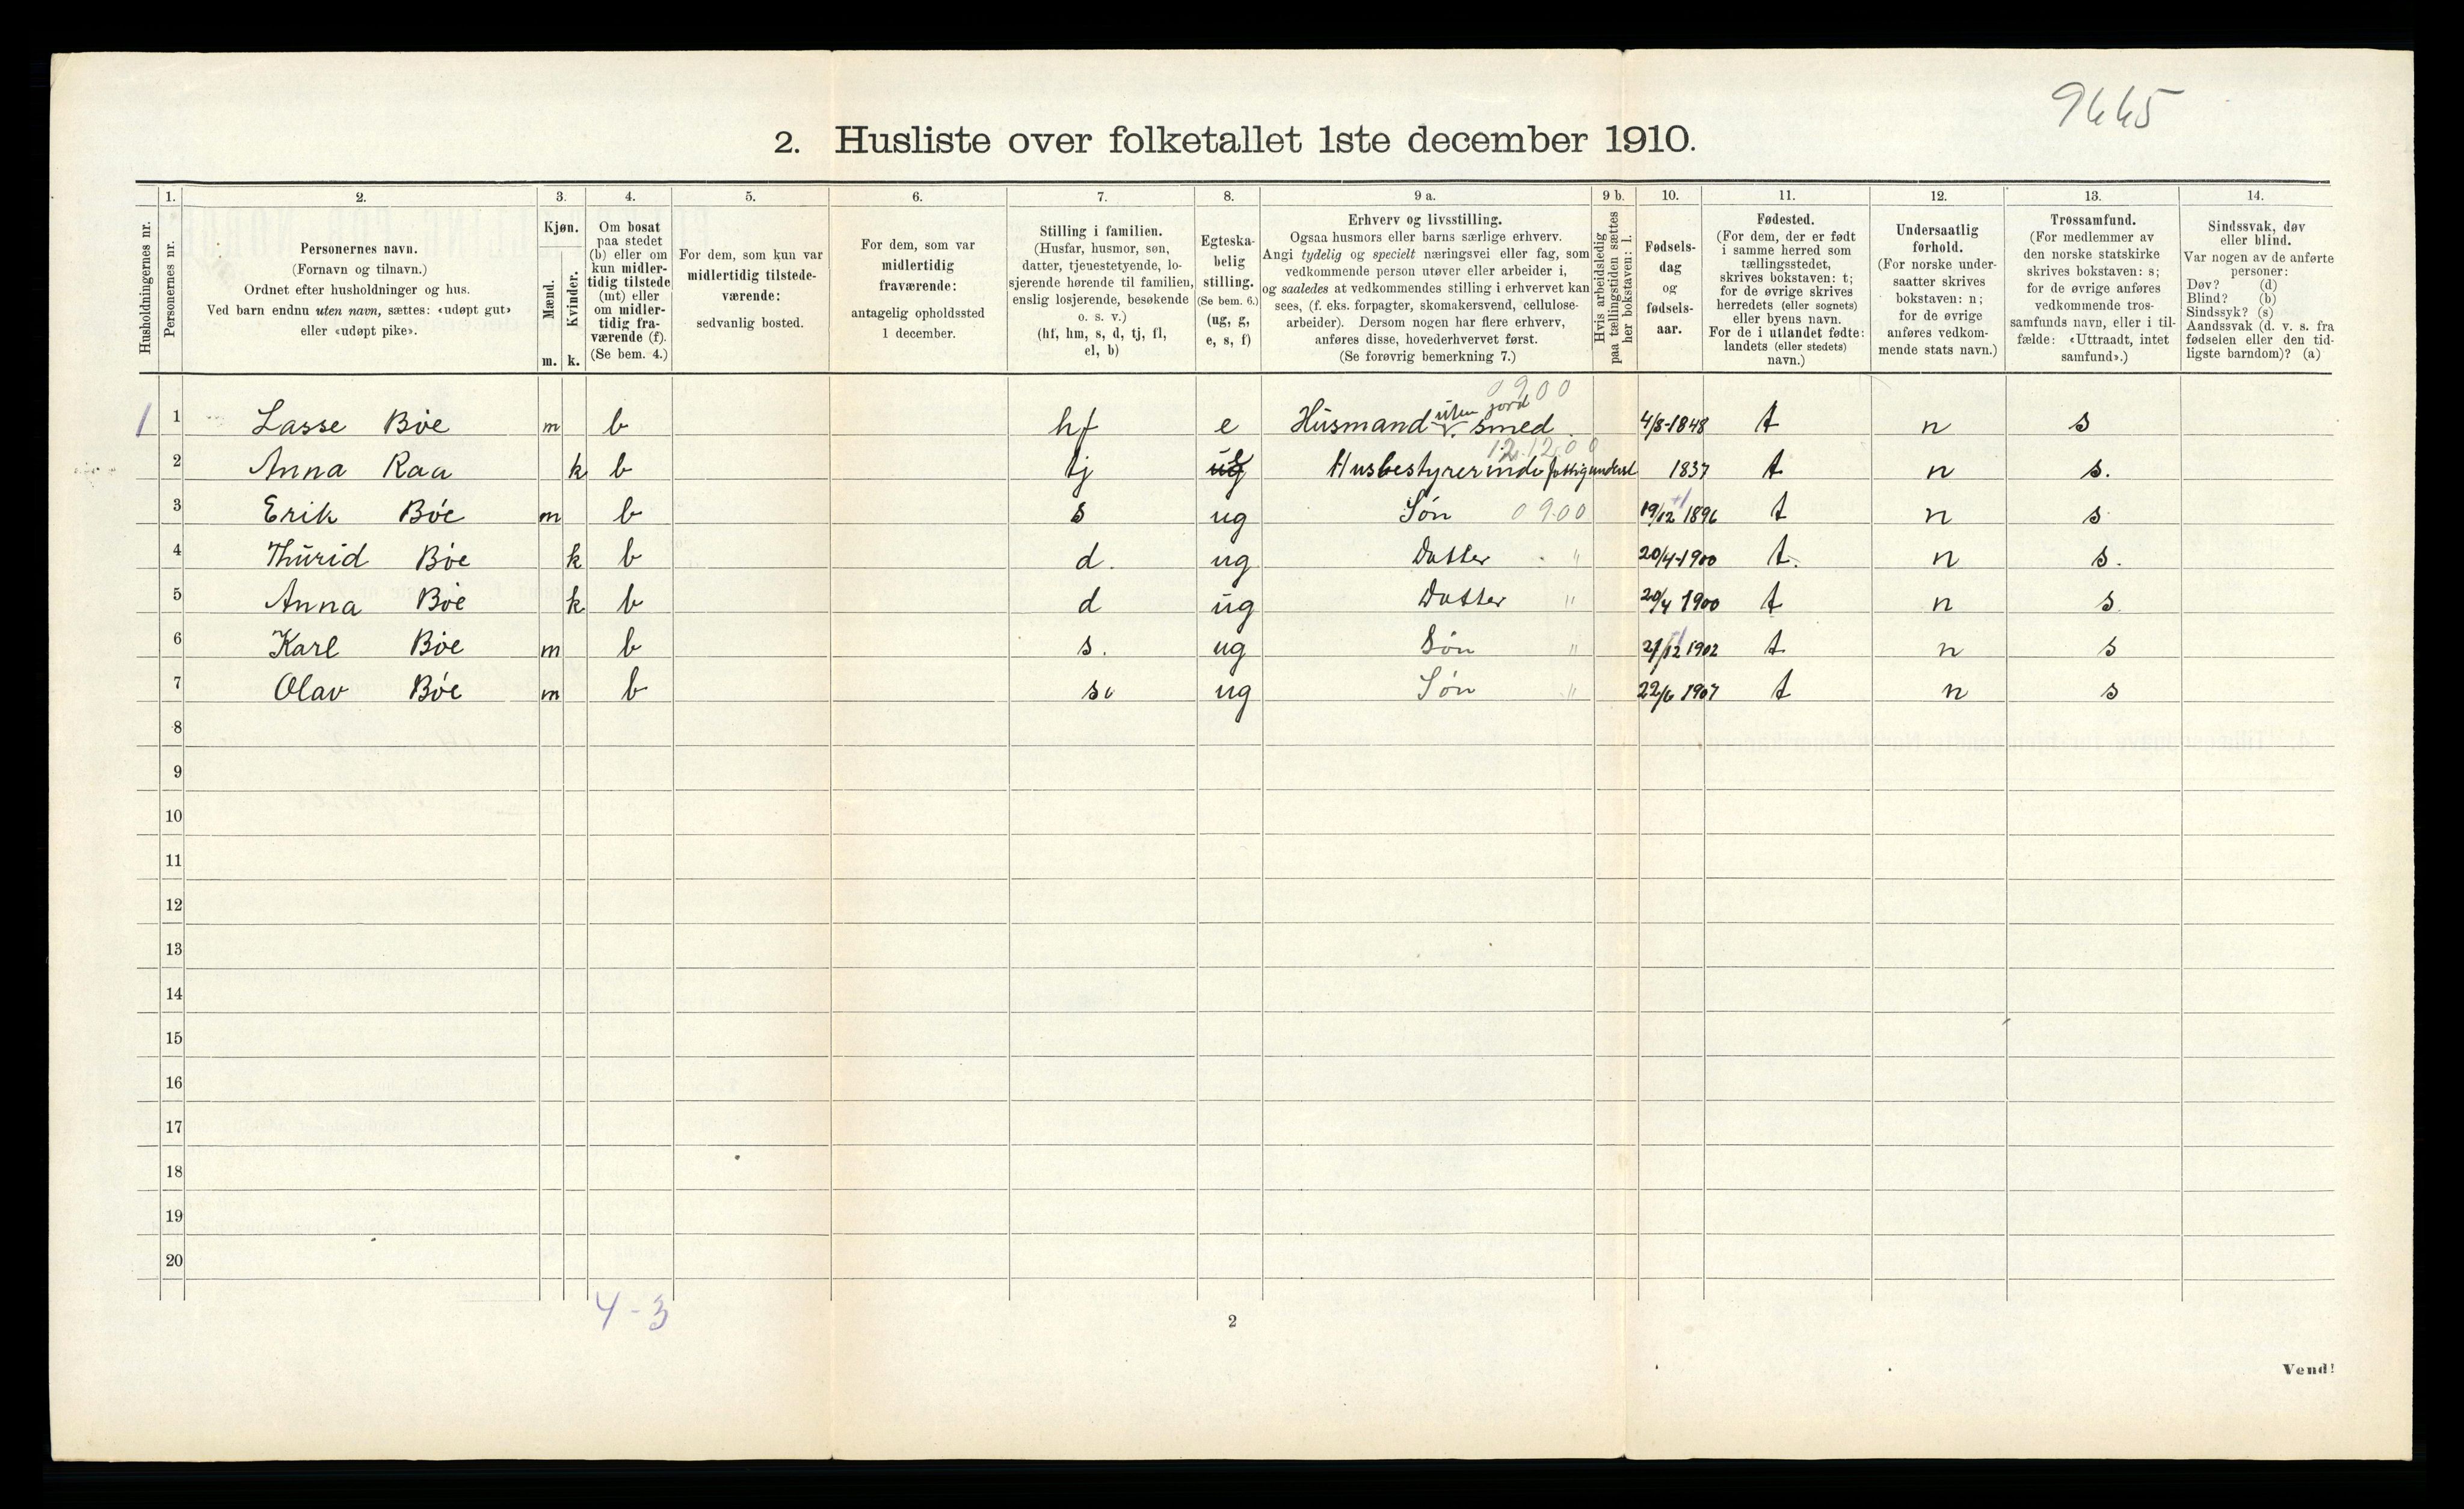 9665
2. Husliste over folketallet 1ste december 1910.
Husholdningernes nr.
1. Personernes nr.
2. Personernes navn. (Fornavn og tilnavn.) Ordnet efter husholdninger og hus. Ved barn endnu uten navn, sættes: «udøpt gut» eller «udøpt pike».
3. Kjøn. Mænd. m. Kvinder. k.
4. Om bosat paa stedet (b) eller om kun midlertidig tilstede (mt) eller om midlertidig fraværende (f). (Se bem. 4.)
5. For dem, som kun var midlertidig tilstedeværende: sedvanlig bosted.
6. For dem, som var midlertidig fraværende: antagelig opholdssted 1 december.
7. Stilling i familien. (Husfar, husmor, søn, datter, tjenestetyende, losjerende hørende til familien, enslig losjerende, besøkende o. s. v.) (hf, hm, s, d, tj, fl, el, b)
8. Egteskabelig stilling. (Se bem. 6.) (ug, g, e, s, f)
9 a. Erhverv og livsstilling. Ogsaa husmors eller barns særlige erhverv. Angi tydelig og specielt næringsvei eller fag, som vedkommende person utøver eller arbeider i, og saaledes at vedkommendes stilling i erhvervet kan sees, (f. eks. forpagter, skomakersvend, cellulosearbeider). Dersom nogen har flere erhverv, anføres disse, hovederhvervet først. (Se forøvrig bemerkning 7.)
9 b. Hvis arbeidsledig paa tællingstiden sættes her bokstaven: l.
10. Fødselsdag og fødselsaar.
11. Fødested. (For dem, der er født i samme herred som tællingsstedet, skrives bokstaven: t; for de øvrige skrives herredets (eller sognets) eller byens navn. For de i utlandet fødte: landets (eller stedets) navn.)
12. Undersaatlig forhold. (For norske undersaatter skrives bokstaven: n; for de øvrige anføres vedkommende stats navn.)
13. Trossamfund. (For medlemmer av den norske statskirke skrives bokstaven: s; for de øvrige anføres vedkommende trossamfunds navn, eller i tilfælde: «Uttraadt, intet samfund».)
14. Sindssvak, døv eller blind. Var nogen av de anførte personer: Døv? (d) Blind? (b) Sindssyk? (s) Aandssvak (d. v. s. fra fødselen eller den tidligste barndom)? (a)
0900
1 1 Lasse Bøe m b hf e Husmand uten jord v. smed. 4/8-1848 t n s
12.1200
2 Anna Raa k b tj ug Husbestyrerinde fattigunderst 1837 t n s.
3 Erik Bøe m b s ug Søn 0900 19/12 1896 t n s
4 Thurid Bøe k b d. ug Datter " 20/4-1900 t. n s.
5 Anna Bøe k b d ug Datter " 20/4 1900 t n s.
6 Karl Bøe m b s. ug Søn " 21/12 1902 t n s
7 Olav Bøe m b s. ug Søn " 22/6 1907 t n s
8
9
10
11
12
13
14
15
16
17
18
19
20
4-3
2
Vend!